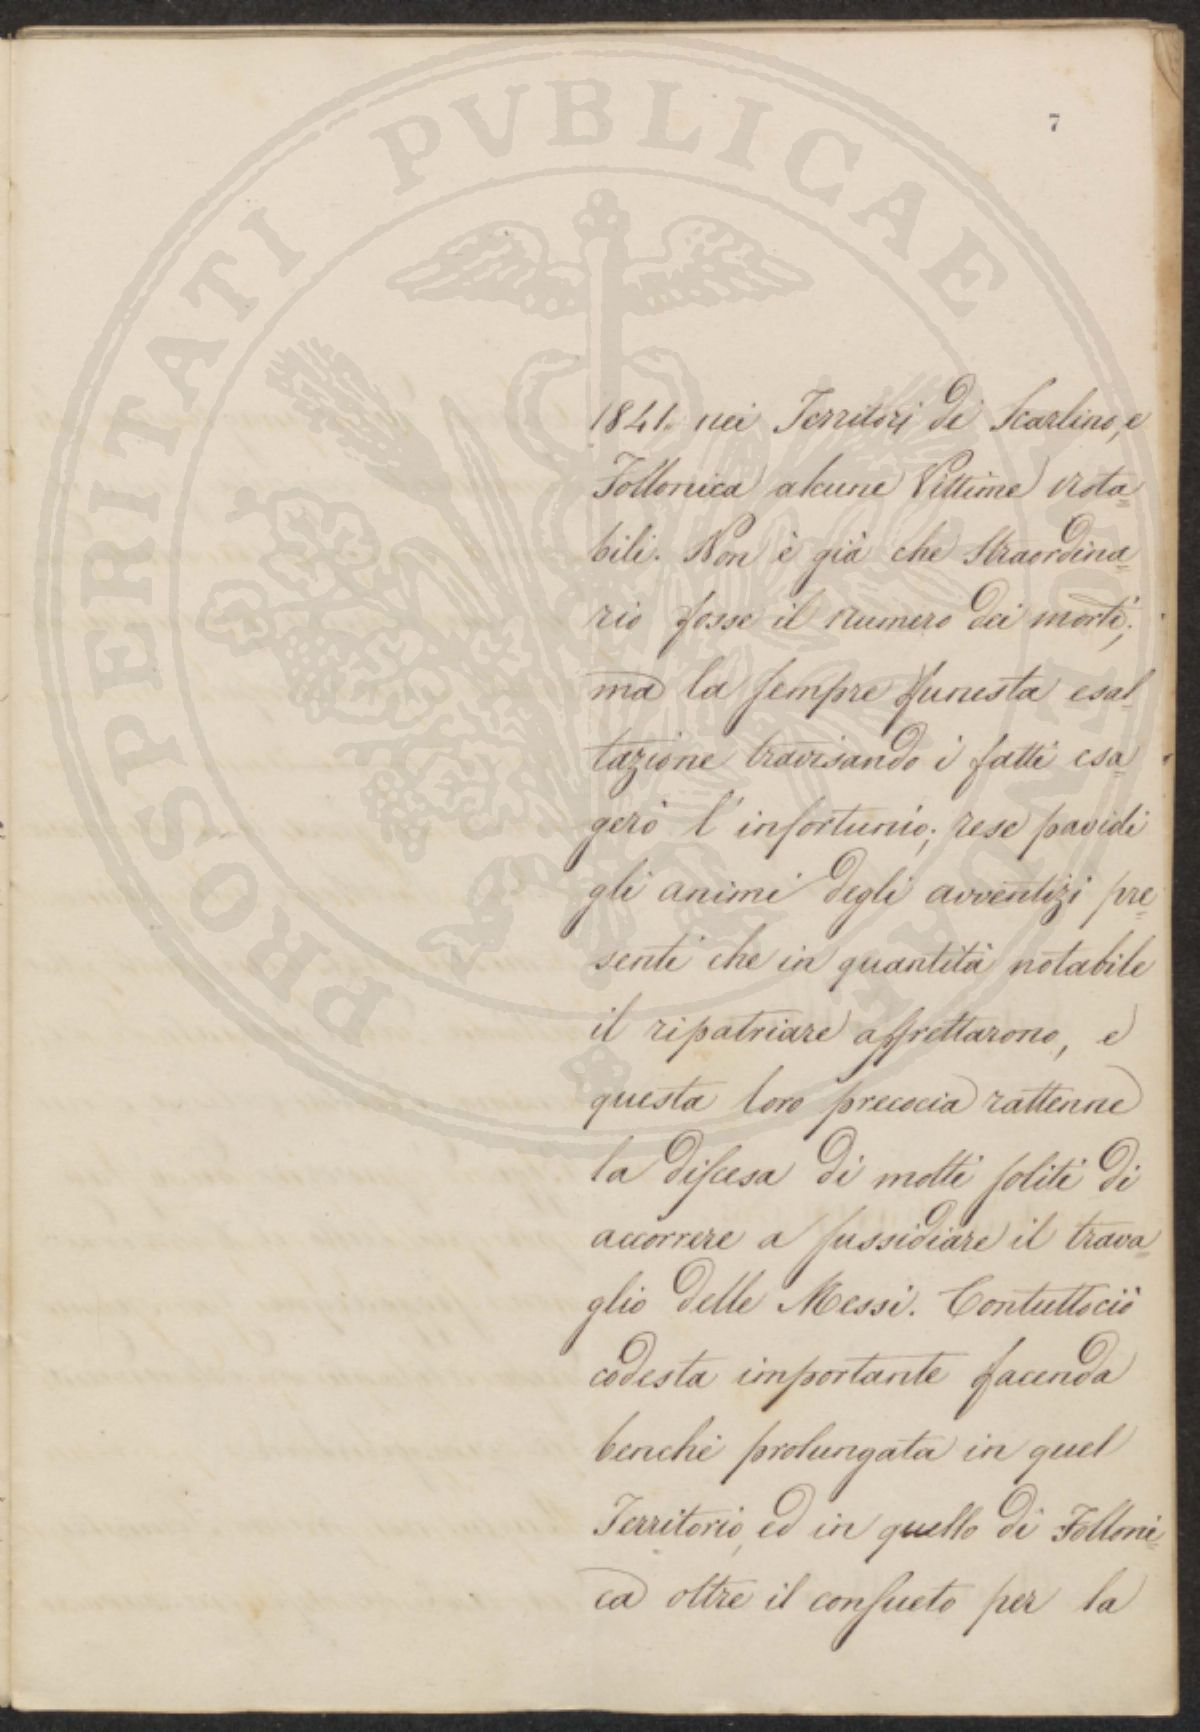 PROSPERITATI PVBLICAE
7
1841. nei Territorj di Scarlino, e
Follonica alcune Vittime nota=
bili. Non è già che Straordina=
rio fosse il numero dei morti;
ma la sempre funesta esal=
tazione travisando i fatti esa=
gerò l'infortunio; rese pavidi
gli animi degli avventizj pre=
senti che in quantità notabile
il ripatriare affrettarono, e
questa loro precocia rattenne
la discesa di molti soliti di
accorrere a sussidiare il trava=
glio delle Messi. Contuttociò
codesta importante facenda
benchè prolungata in quel
Territorio, ed in quello di Folloni=
ca oltre il consueto per la